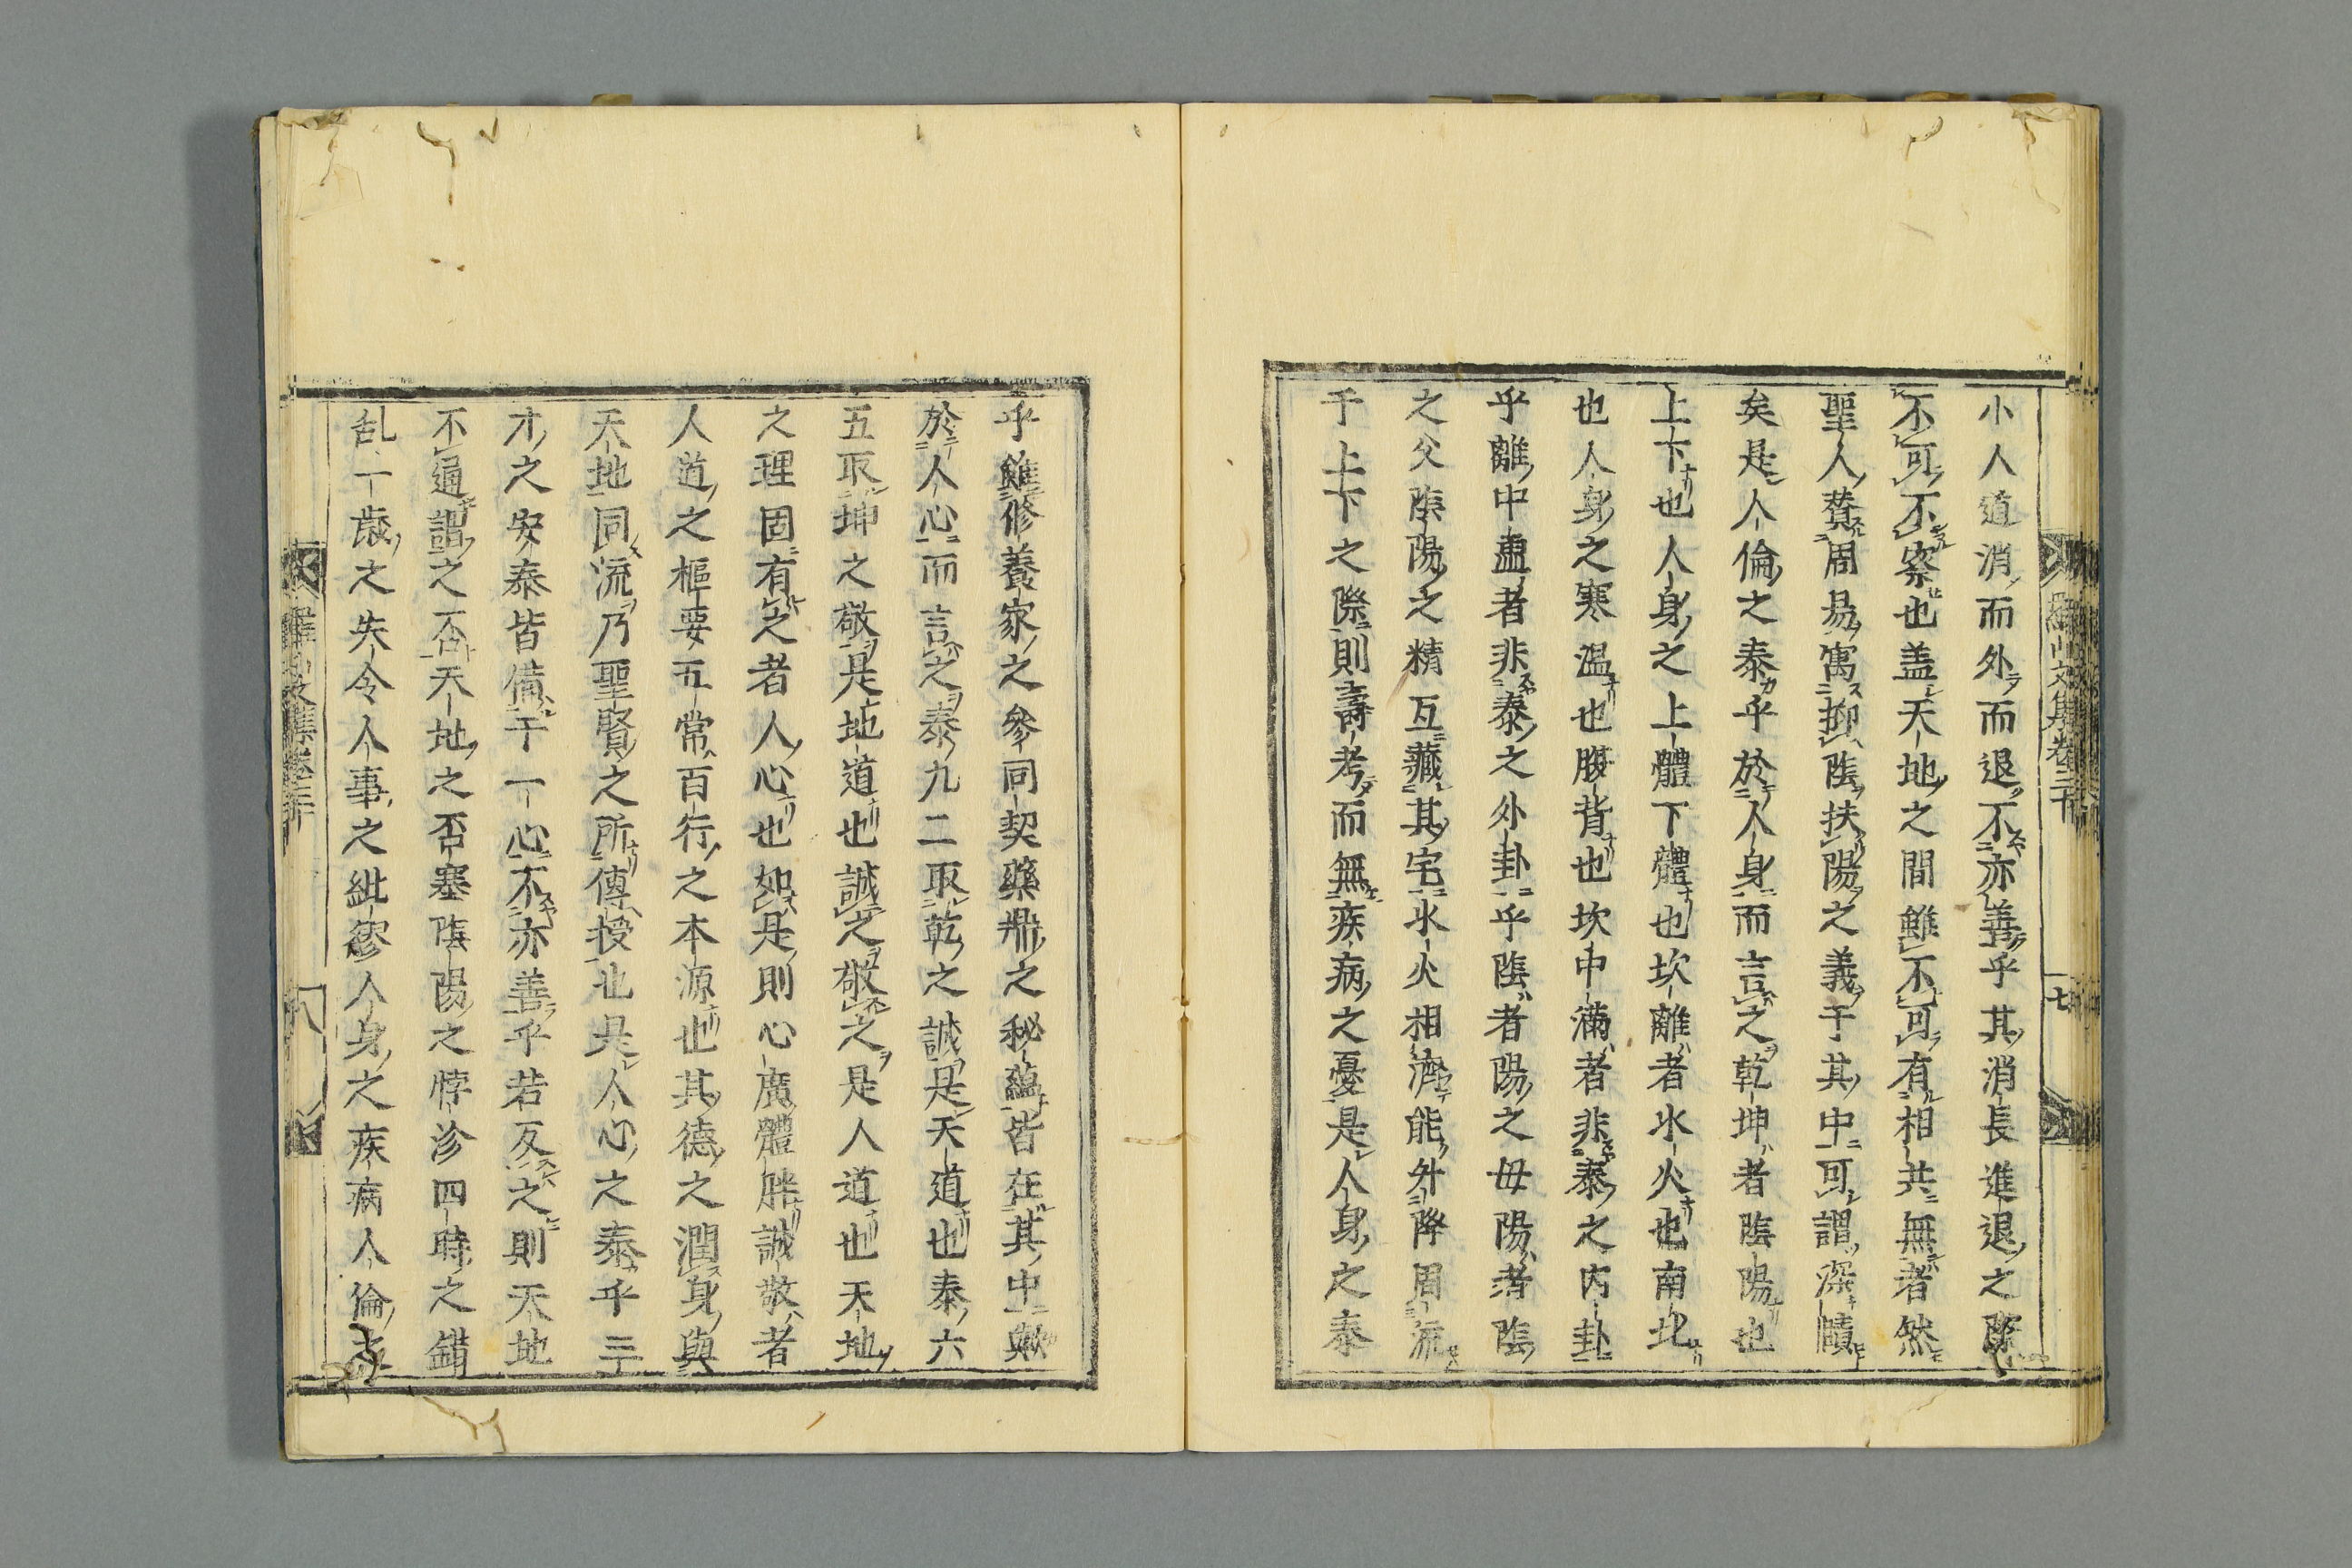 羅山文集卷三十
七
小人道消而外而退不亦善乎其消長進退之際
不可不察也盖天地之間雖不可有相共無者然
聖人賛周易寓抑陰扶陽之義于其中可謂深賾
矣是人倫之泰乎於人身而言之乾坤者陰陽也
上下也人身之上上體下體也坎離者水火也南北
也人身之寒溫也腹背也坎中滿者非泰之内卦
乎離中虛者非泰之外卦乎陰者陽之母陽者陰
之父陰陽之精互藏其宅水火相濟能升降周流
于上下之際則壽考而無疾病之憂是人身之泰
乎雖修養家之參同契藥鼎之秘蘊皆在其中歟
於人心而言之泰九二取乾之誠是天道也泰六
五取坤之敬是地道也誠之敬之是人道也天地
之理固有之者人心也如是則心廣體胖誠敬者
人道之樞要五常百行之本源也其德之潤身與
天地同流乃聖賢之所傳授也是人心之泰乎三
才之安泰皆備于一心不亦善乎若反之則天地
不通謂之否天地之否塞陰陽之悖沴四時之錯
乱一歲之失令人事之紕繆人身之疾病人倫
羅山文集卷三十
八